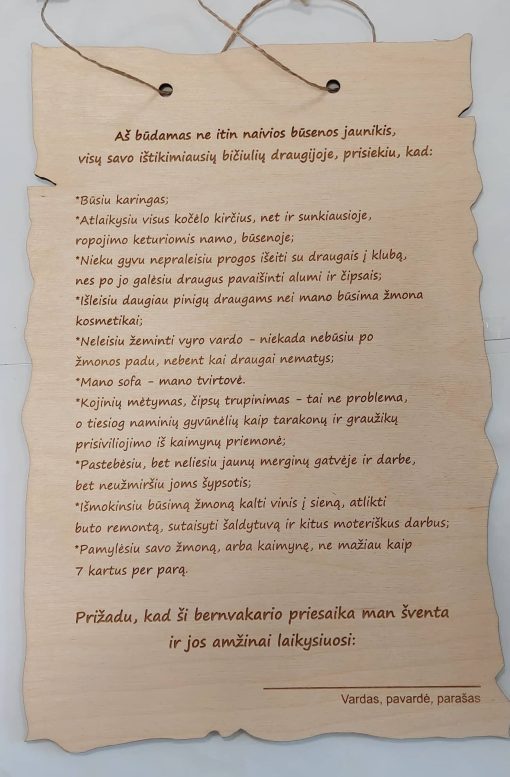 Aš būdamas ne itin naivios būsenos jaunikis,
visų savo ištikimiausių bičiulių draugijoje, prisiekiu, kad:
*Būsiu karingas;
*Atlaikysiu visus kočėlo kirčius, net ir sunkiausioje,
ropojimo keturiomis namo, būsenoje;
*Nieku gyvu nepraleisiu progos išeiti su draugais į klubą,
nes po jo galėsiu draugus pavaišinti alumi ir čipsais;
*Išleisiu daugiau pinigų draugams nei mano būsima žmona
kosmetikai;
*Neleisiu žeminti vyro vardo - niekada nebūsiu po
žmonos padu, nebent kai draugai nematys;
*Mano sofa - mano tvirtovė.
*Kojinių mėtymas, čipsų trupinimas - tai ne problema,
o tiesiog naminių gyvūnėlių kaip tarakonų ir graužikų
prisiviliojimo iš kaimynų priemonė;
*Pastebėsiu, bet neliesiu jaunų merginų gatvėje ir darbe,
bet neužmiršiu joms šypsotis;
*Išmokinsiu būsimą žmoną kalti vinis į sieną, atlikti
buto remontą, sutaisyti šaldytuvą ir kitus moteriškus darbus;
*Pamylėsiu savo žmoną, arba kaimynę, ne mažiau kaip
7 kartus per parą.
Prižadu, kad ši bernvakario priesaika man šventa
ir jos amžinai laikysiuosi:
Vardas, pavardė, parašas